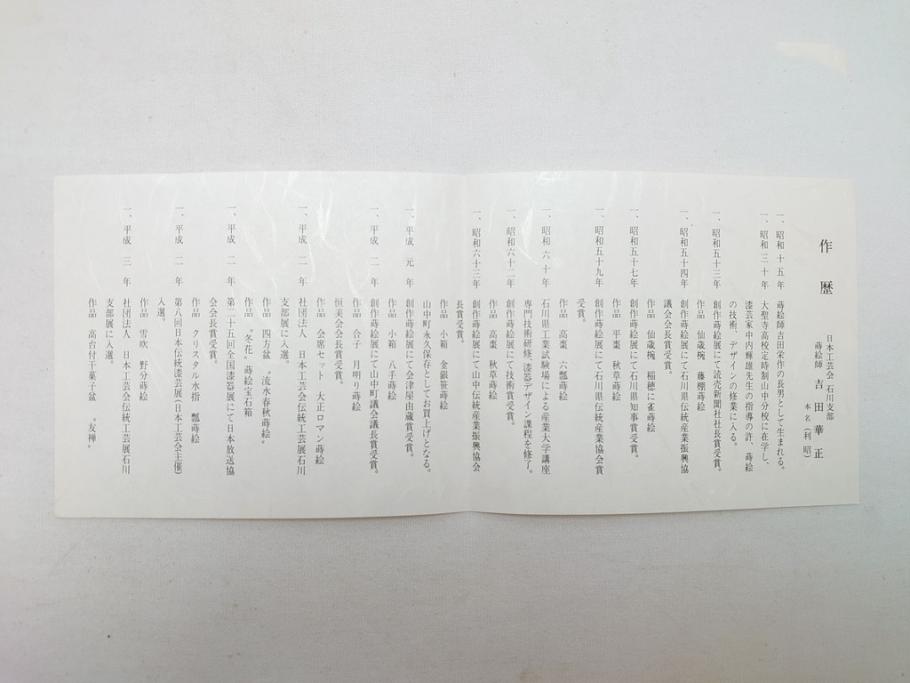 作歴
日本工芸会 石川支部
蒔絵師 吉田華正
本名(利昭)
一、昭和十五年 蒔絵師吉田栄作の長男として生まれる。
一、昭和三十年 大聖寺高校定時制山中分校に在学し、
漆芸家中内輝雄先生の指導の許、蒔絵
の技術、デザインの修業に入る。
一、昭和五十三年 創作蒔絵展にて読売新聞社社長賞受賞。
作品 仙歳椀 藤棚蒔絵
一、昭和五十四年 創作蒔絵展にて石川県伝統産業振興協
議会会長賞受賞。
作品 仙歳椀 稲穂に雀蒔絵
一、昭和五十七年 創作蒔絵展にて石川県知事賞受賞。
作品 平棗 秋草蒔絵
一、昭和五十九年 創作蒔絵展にて石川県伝統産業協会賞
受賞。
作品 高棗 六瓢蒔絵
一、昭和六十年 石川県工業試験場による産業大学講座
専門技術研修、漆器デザイン課程を修了。
一、昭和六十二年 創作蒔絵展にて技術賞受賞。
作品 高棗 秋草蒔絵
一、昭和六十三年 創作蒔絵展にて山中伝統産業振興協会
長賞受賞。
作品 小箱 金銀笹蒔絵
山中町永久保存としてお買上げとなる。
一、平成元年 創作蒔絵展にて会津屋由蔵賞受賞。
作品 小箱 八手蒔絵
一、平成二年 創作蒔絵展にて山中町議会議長賞受賞。
作品 合子 月明り蒔絵
恒美会会長賞受賞。
作品 会席セット 大正ロマン蒔絵
一、平成二年 社団法人 日本工芸会伝統工芸展石川
支部展に入選。
作品 四方盆 〝流水春秋蒔絵〟
作品 〝冬花〟蒔絵宝石箱
一、平成二年 第二十五回全国漆器展にて日本放送協
会会長賞受賞。
作品 クリスタル水指 瓢蒔絵
一、平成二年 第八回日本伝統漆芸展(日本工芸会主催)
入選。
作品 雪吹 野分蒔絵
一、平成三年 社団法人 日本工芸会伝統工芸展石川
支部展に入選。
作品 高台付干菓子盆 〝友禅〟